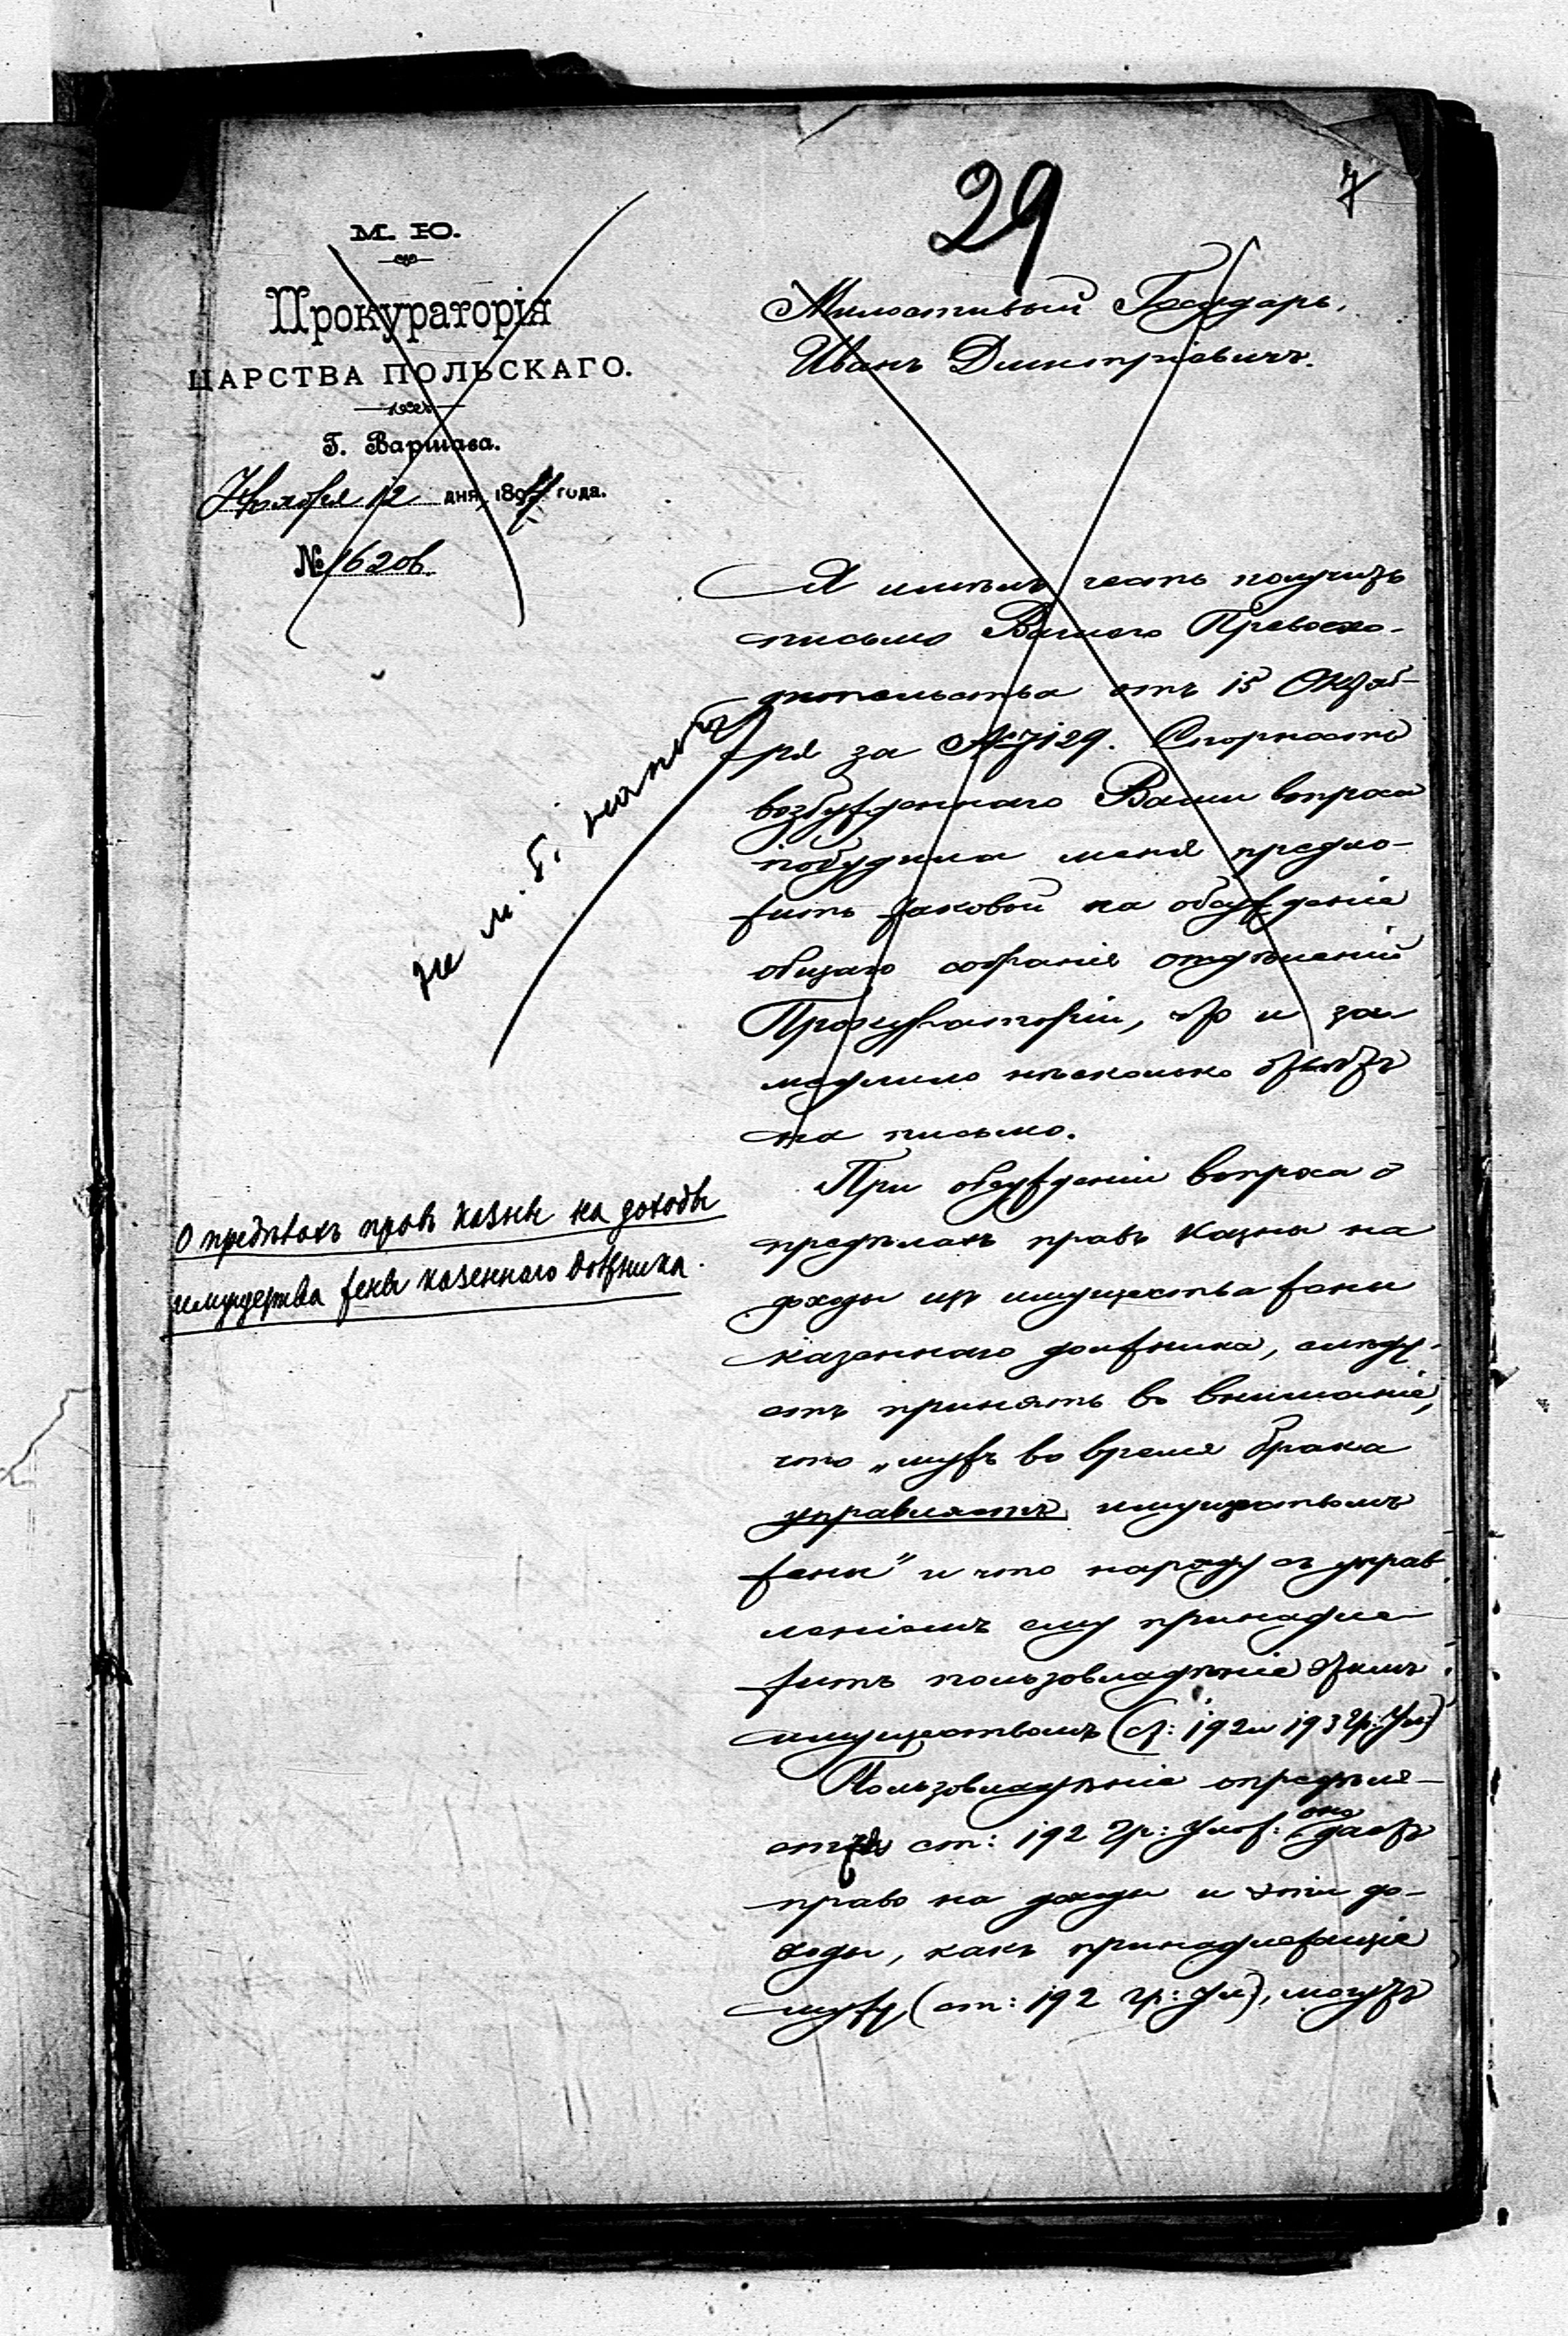 29
7
М. Ю.
Прокураторія
ЦАРСТВА ПОЛЬСКАГО.
Г. Варшава.
Ноября 12 дня, 189 года.
№ 16206.
Милостивый Государь,
Иванъ Дмитріевичъ.
Я имѣлъ честь получить
письмо Вашего Превосхо-
дительства отъ 15 Октяб-
ря за № 7129. Спорность
возбужденнаго Вами вопроса
побудила меня предло-
жить таковой на обсужденіе
общаго собранія отдѣленій
Прокураторіи, что и за
медлило нѣсколько отвѣтъ
на письмо.
не м. б. напеч
О предѣлахъ правъ казны на доходы
имущества жены казеннаго должника.
При обсужденіи вопроса о
предѣлахъ правъ Казны на
доходы изъ имущества жены
казеннаго должника, слѣду-
етъ принять во вниманіе,
что „мужъ во время брака
управляетъ имуществомъ
жены" и что наряду съ управ
леніемъ ему принадле
житъ пользовладѣніе этимъ
имуществомъ (ст: 192 и 193 Гр: Ул)
Пользовладѣніе опредѣля-
етъ ст: 192 Гр: Улож: оно даетъ
право на доходы и эти до-
ходы, какъ принадлежащіе
мужу (ст: 192 гр: Ул), могутъ